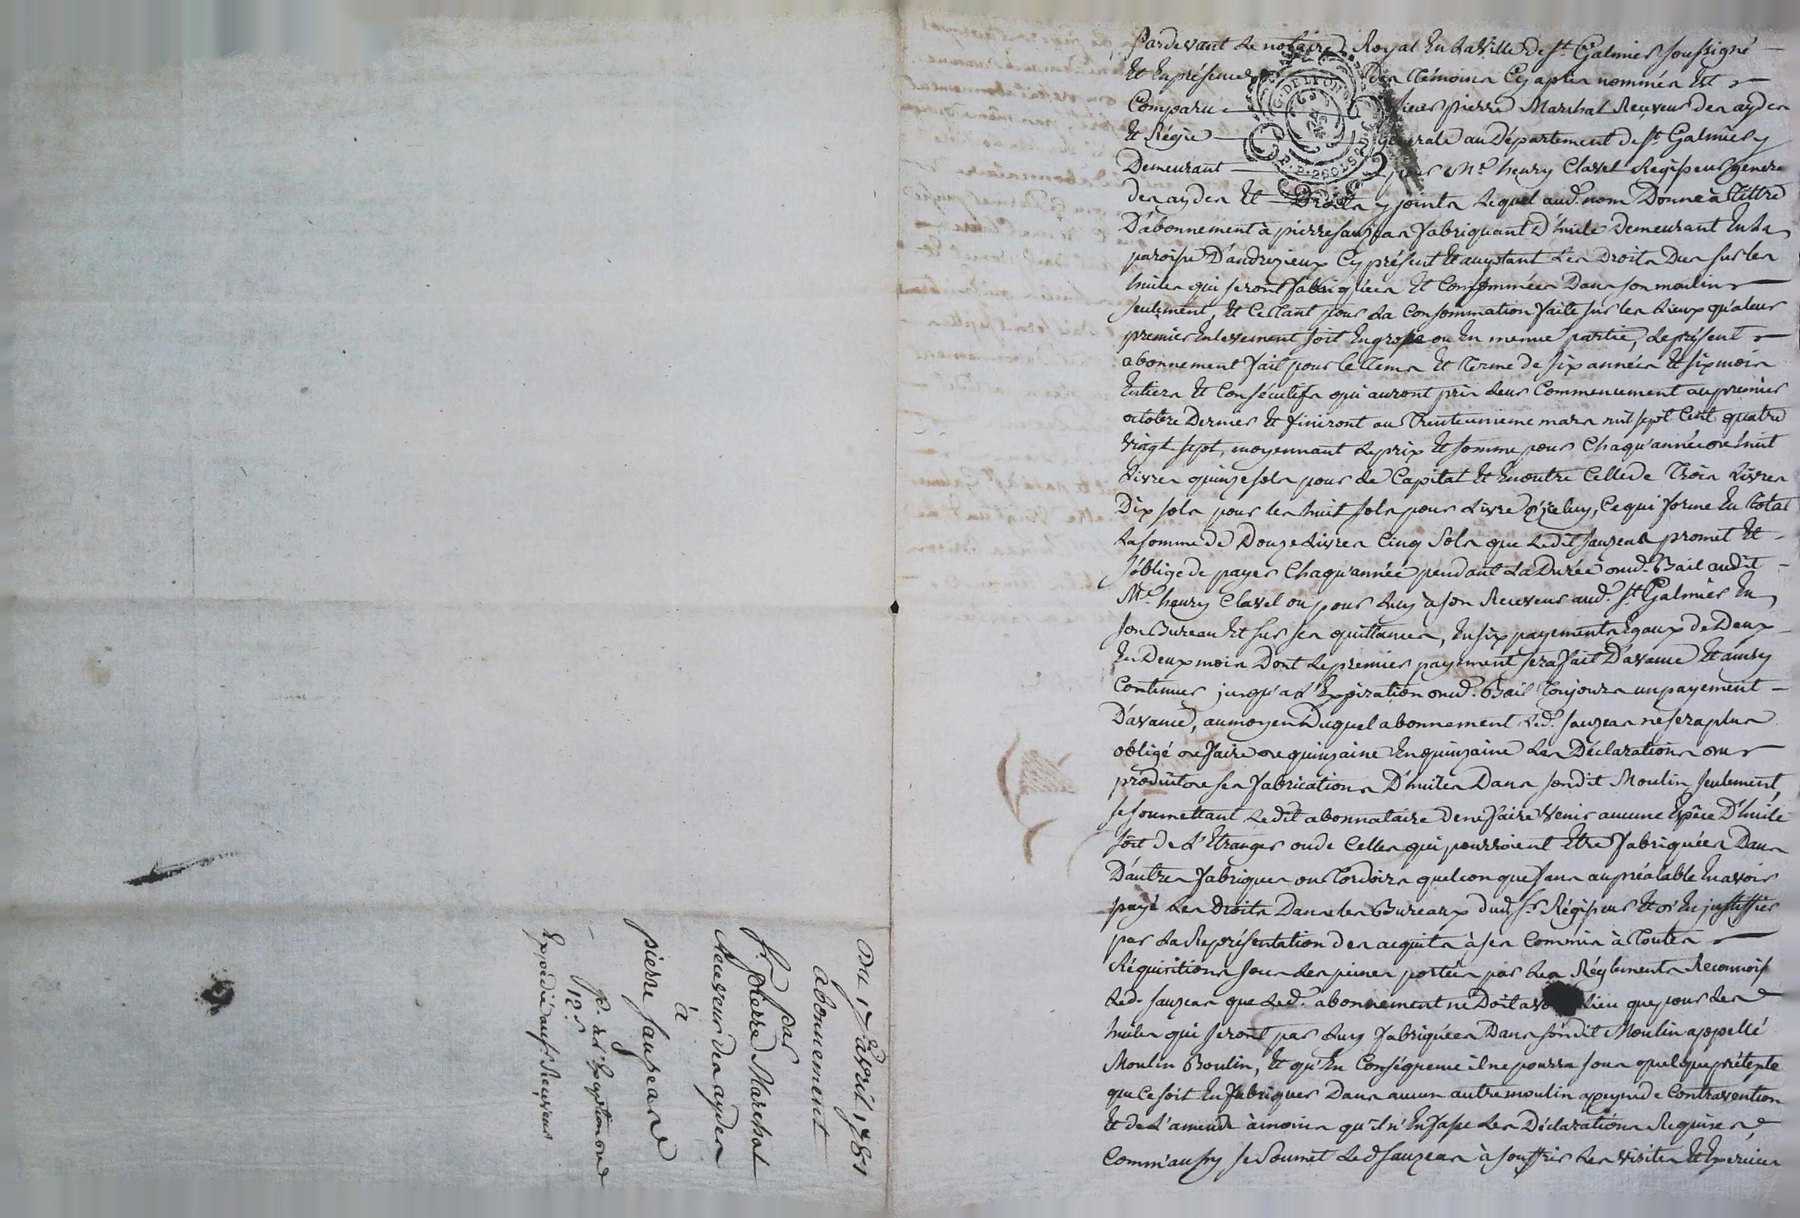 Pardevant Le notaire Royal En La Ville de St. Galmier soussigné
Et En présence des Témoins Cy après nommés Est
Comparu sieur pierre Marchal Reçeveur des aydes
Et Régie générale au Département de St. Galmier y
Demeurant pour Mr. henry Clavel Régisseur général
des aydes Et Droits y joints Lequel aud. nom Donne à Tittre
D'abonnement à pierre sauzeas fabriquant D'huile Demeurant En La
paroisse D'andrezieux Cy présent Et acceptant Les Droits Dus sur les
huiles qui seront fabriquées Et Consommées Dans son moulin
seulement, Et Cestant pour La Consommation faite sur les Lieux qu'a leur
premier Enlevement soit En gros ou En menue partie, Le présent
abonnement fait pour le Tems Et Terme de six années Et six mois
Entiers Et Consécutifs qui auront pris Leur Commencement au premier
octobre Dernier Et finiront au Trente unieme mars mil sept Cent quatre
vingt sept, moyennant Le prix Et somme pour Chaqu'année de huit
Livres quinze sols pour Le Capital Et En outre Celle de Trois Livres
Dix sols pour les huit sols pour Livre d'iceluy, Ce qui forme En Total
La somme de Douze Livres Cinq Sols que Ledit sauzeas promet Et
s'oblige de payer Chaqu'année pendant La Durée dud. Bail audit
Mr. henry Clavel ou pour Luy à son Receveur aud. St. Galmier En
son Bureau Et sur ses quittances, En six payements Egaux de Deux
En Deux mois Dont Le premier payement sera fait D'avance Et ainsy
Continuer jusqu'a L'Expiration dud. Bail Toujours un payement
D'avance, au moyen Duquel abonnement Led. sauzeas ne sera plus
obligé de faire de quinzaine En quinzaine Les Déclarations du
produit de ses fabrications D'huiles Dans sondit Moulin seulement,
se soumettant Ledit abonnataire de ne faire venir aucune Espèce D'huile
soit de L'Etranger ou de Celles qui pourroient Etre fabriquées Dans
D'autres fabriques ou Tordoirs quelconque sans au préalable En avoir
payé Les Droits Dans les Bureaux dud. Sr. Régisseur Et d'En justiffier
par La Représentation des acquits à ses Commis à Toutes
Réquisitions sous Les peines portées par Les Réglements Reconnois
Led. sauzeas que Led. abonnement ne Doit avoir Lieu que pour Les
huiles qui seront par Luy fabriquées Dans sondit Moulin appellé
Moulin Boulin, Et qu'En Conséquence il ne pourra sous quelque prétexte
que Ce soit En fabriquer Dans aucun autre moulin a peyne de Contravention
Et de L'amende à moins qu'il n'En fasse Les Déclarations Requises,
Comm'aussy se Soumet Led sauzeas à souffrir Les visites Et Exercices
Du 17 avril 1781
abonnement
par
Sr. pierre Marchal
Receveur des aydes
à
pierre sauzeas
Expédié auSr. Receveur